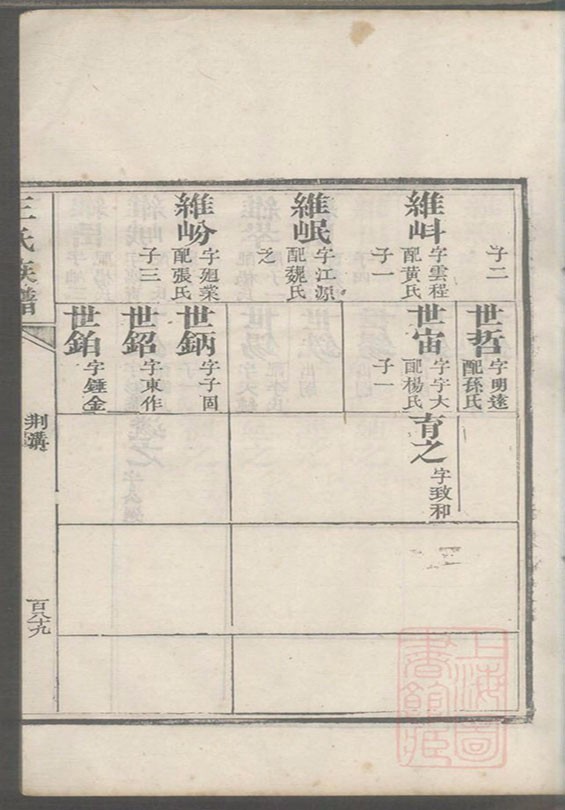 子二
世哲
字明遠
配孫氏
維㟁
字雲程
配黃氏
子一
世宙
字字大
配楊氏
子一
育之
字致和
維岷
字江源
配魏氏
之
維岎
字廻業
配張氏
子三
世鈵
字子固
世鉊
字東作
世鉑
字鍾金
王氏族譜
荆溝
百八十九
上海圖書館藏